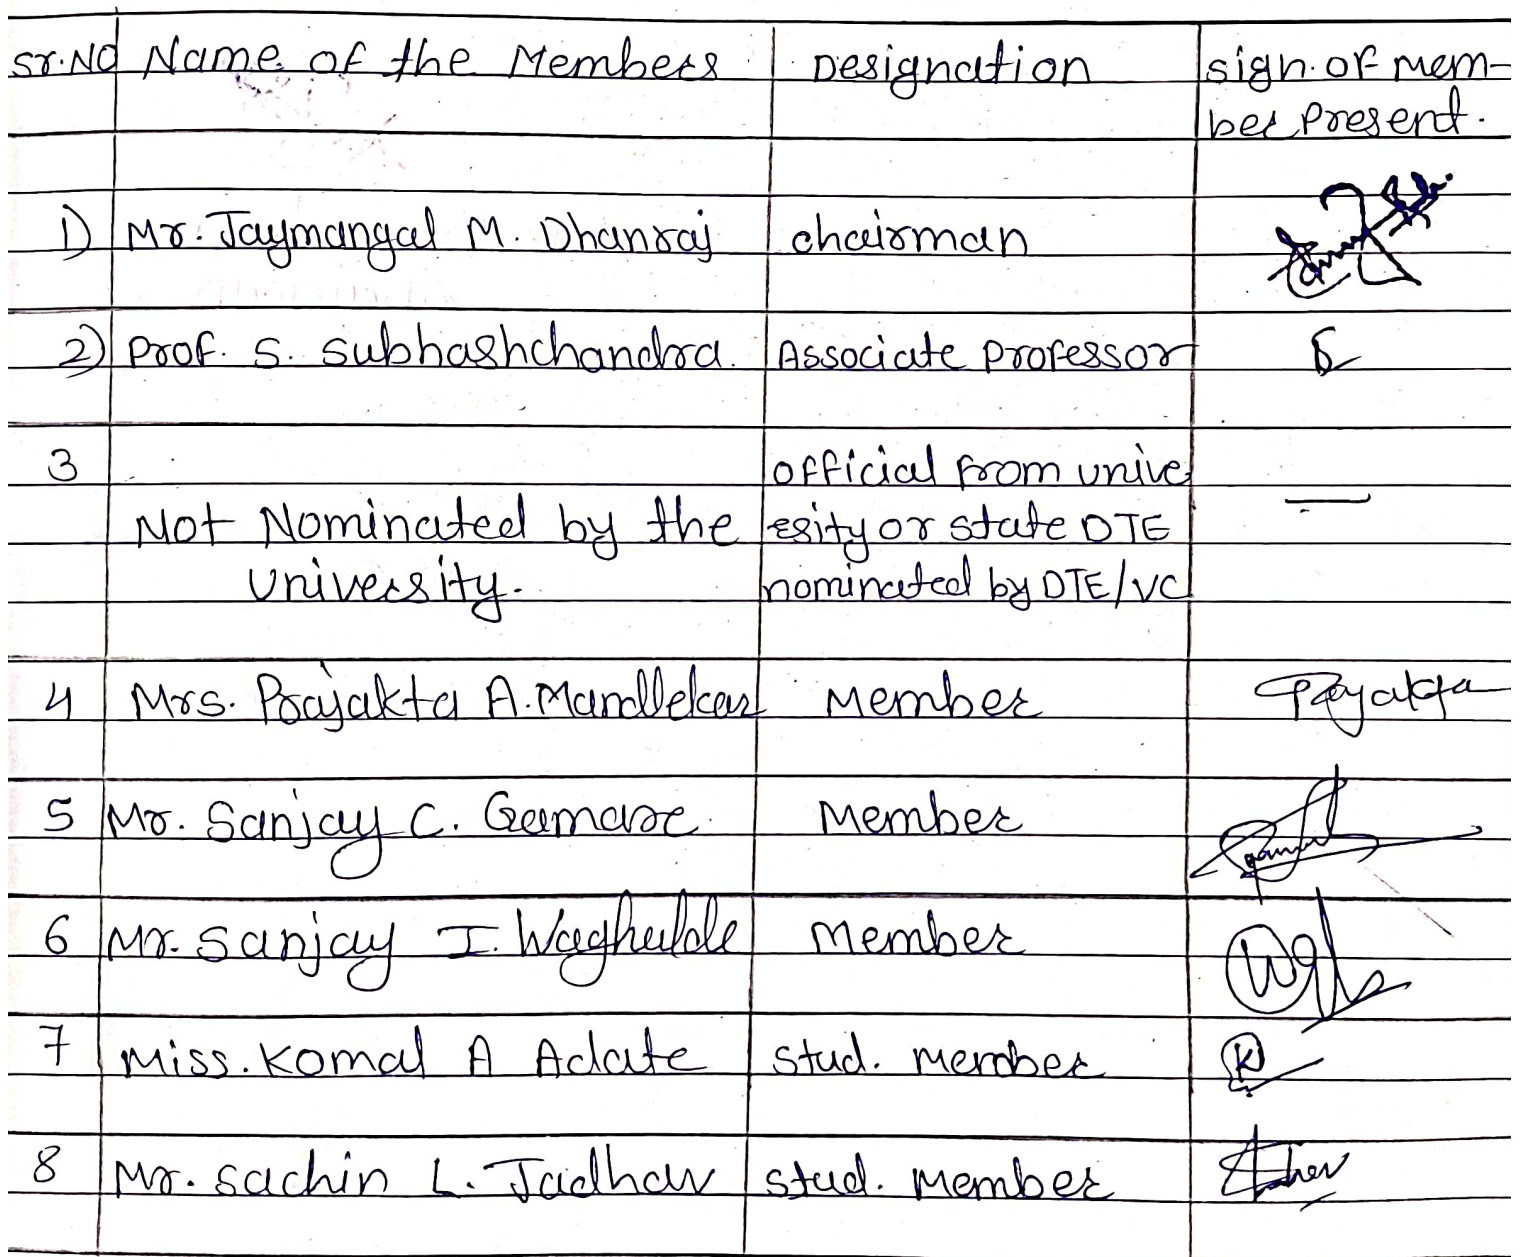 Sr.No Name of the Members Designation sign. of mem-
ber Present.
1) Mr. Jaymangal M. Dhanraj chairman
2) Prof. S. Subhashchandra. Associate Professor
3 official from unive
Not Nominated by the rsity or state DTE
University. nominated by DTE/VC
4 Mrs. Prajakta A. Mandlekar Member Prajakta
5 Mr. Sanjay C. Gamare Member
6 Mr. Sanjay I. Waghulde Member
7 Miss. Komal A Adate stud. member K
8 Mr. Sachin L. Jadhav stud. member